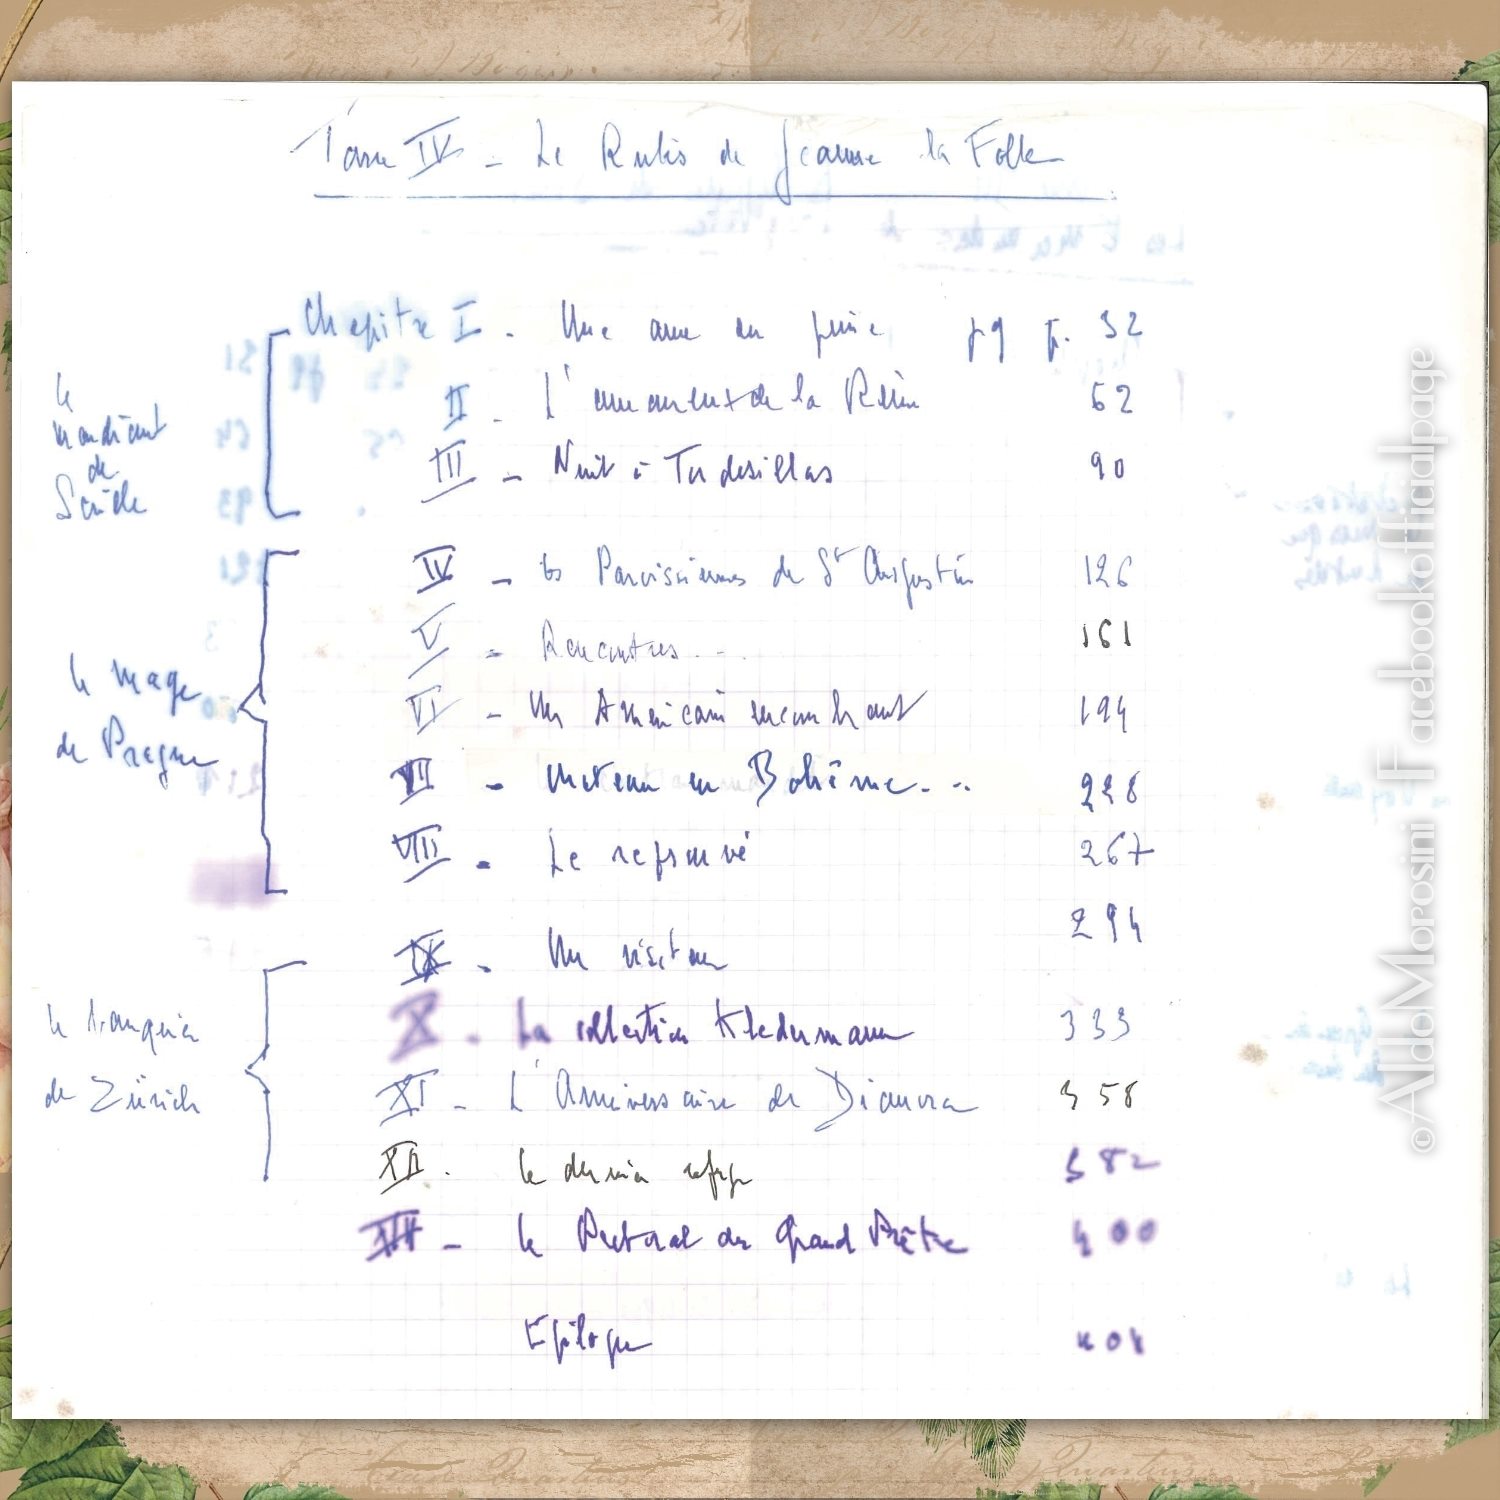 Tome IV - Le Rubis de Jeanne la Folle
Le mendiant de Séville
Chapitre I - Une âme en peine pg p. 32
II - L'amoureux de la Reine 62
III - Nuit à Tordesillas 90
Le mage de Prague
IV - Les Paroissiennes de St Augustin 126
V - Rencontres... 161
VI - Un Américain encombrant 194
VII - Château en Bohême... 228
VIII - Le reprouvé 267
Le banquier de Zürich
IX - Un visiteur 294
X - La collection Kledermann 333
XI - L'Anniversaire de Dianora 358
XII - Le dernier refuge 382
XIII - Le Pectoral du Grand Prêtre 400
Epilogue 408
©AldoMorosini Facebookofficialpage